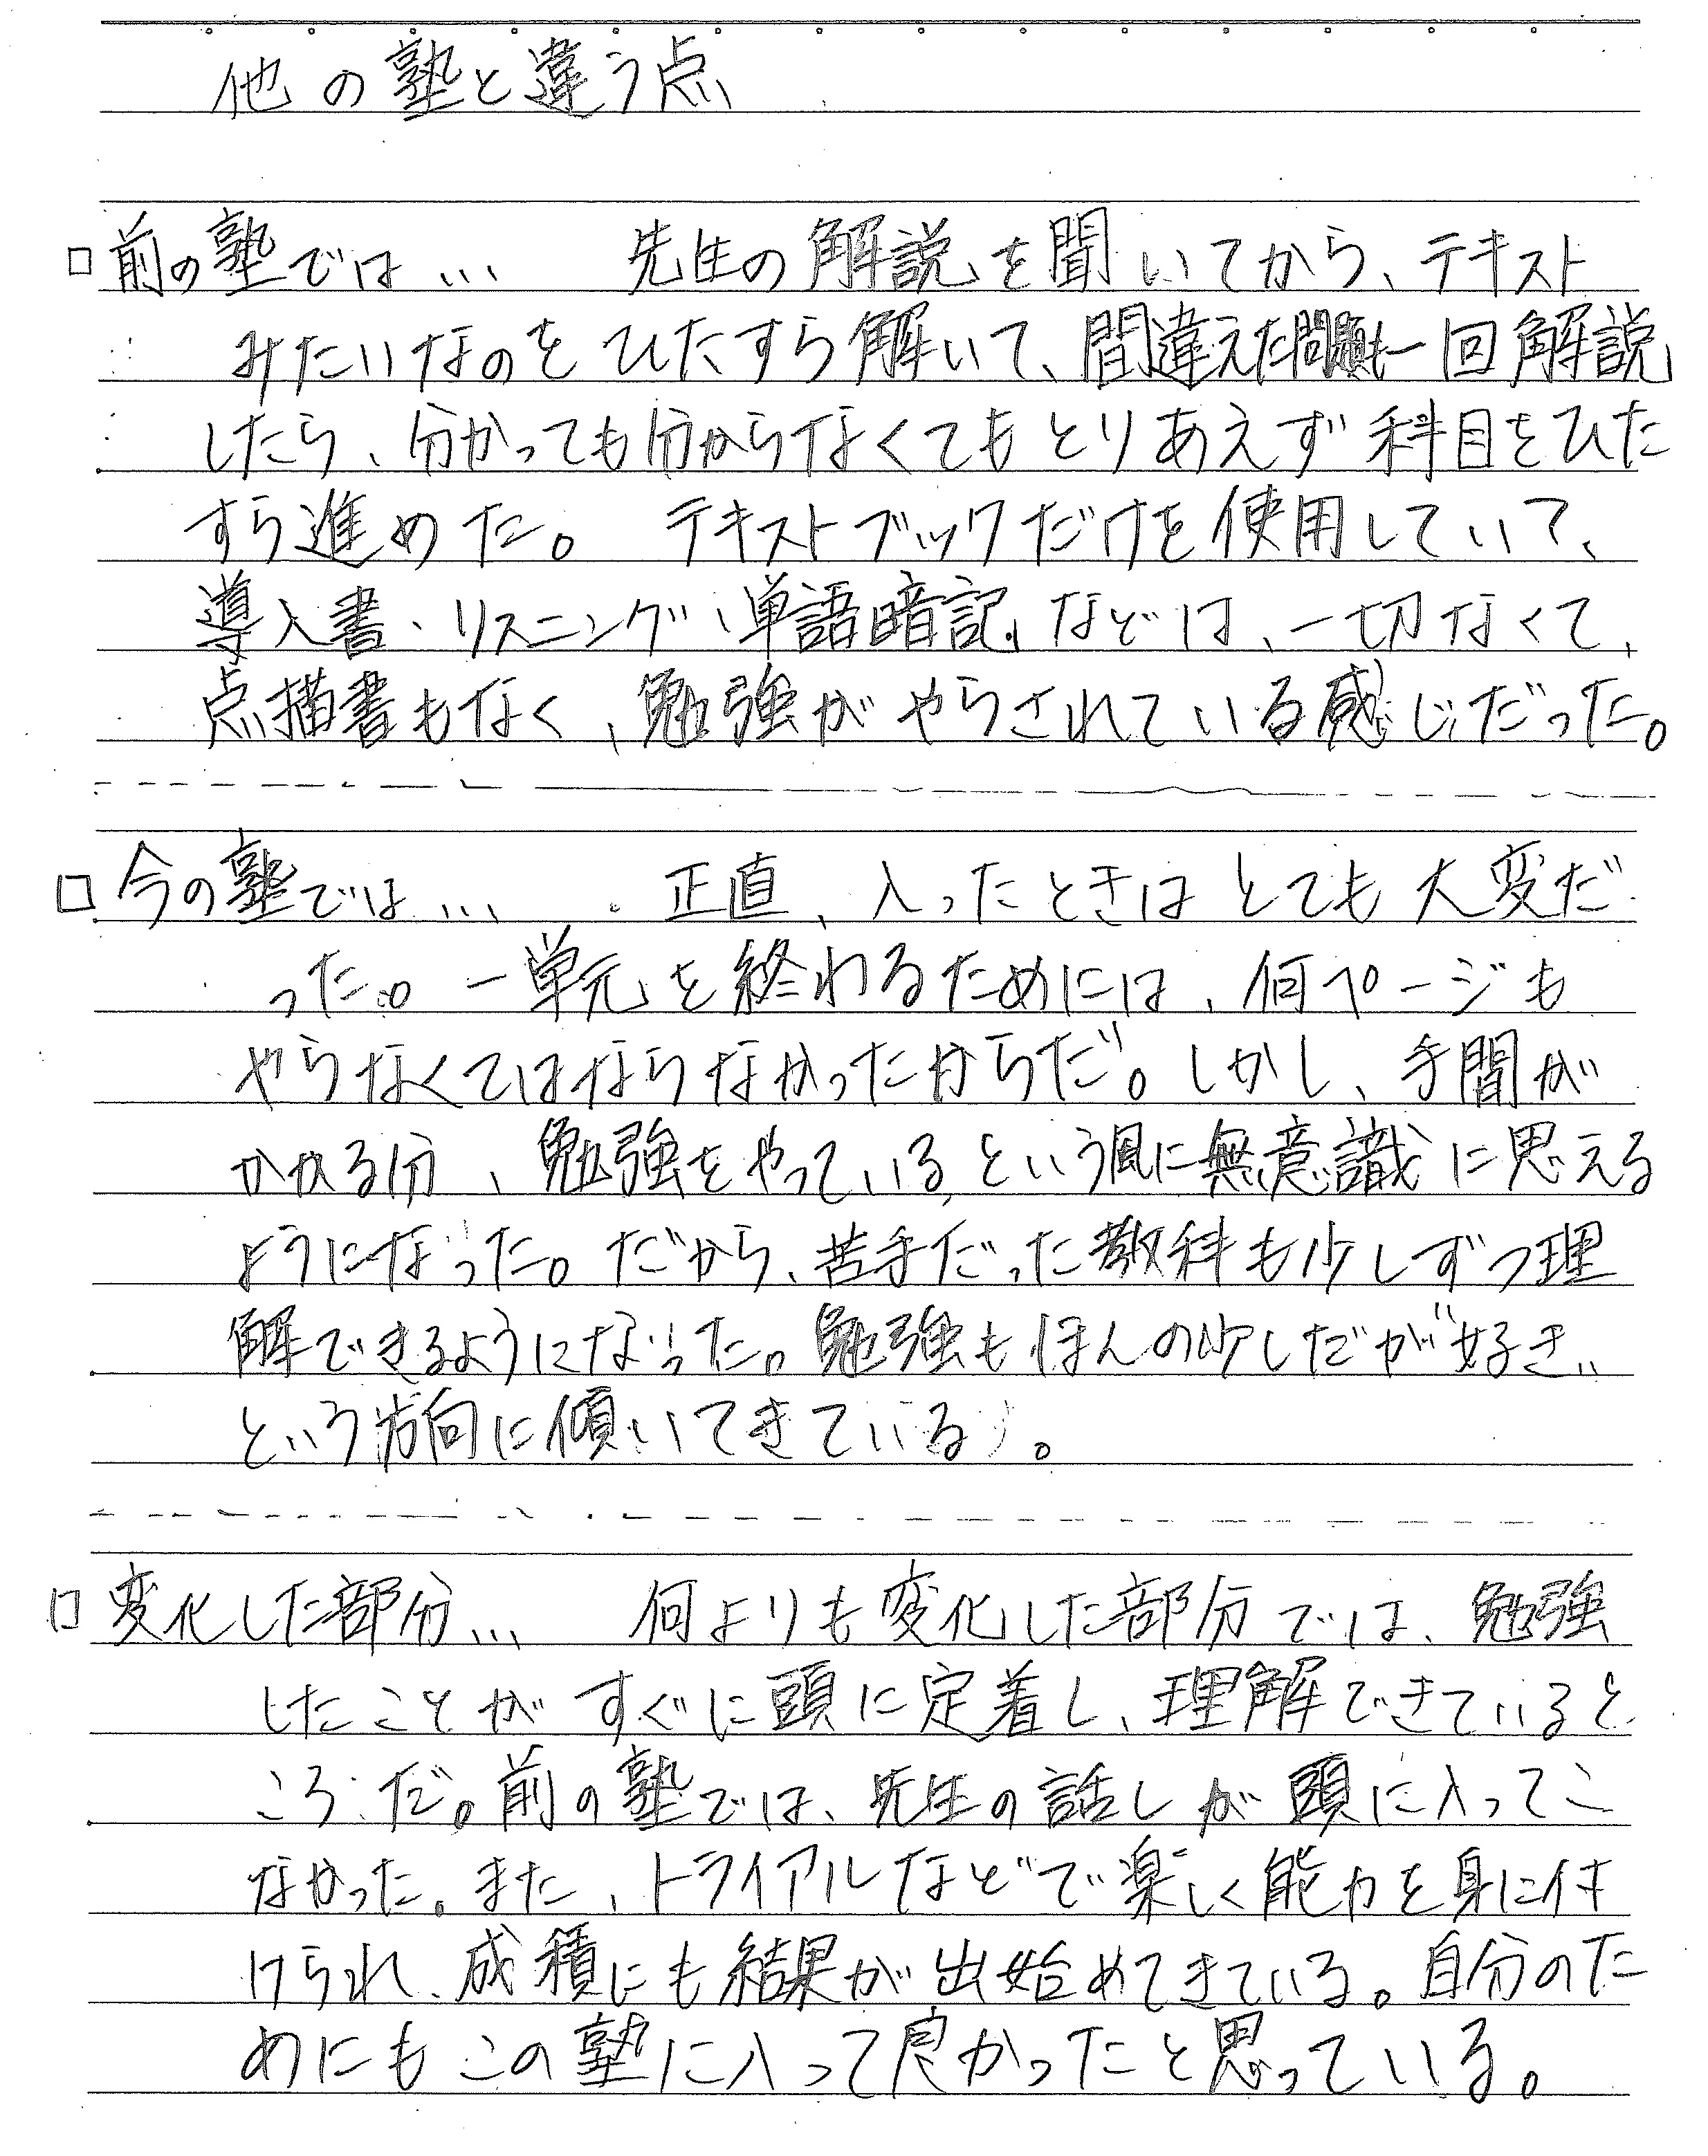 他の塾と違う点
□前の塾では… 先生の解説を聞いてから、テキスト
みたいなのをひたすら解いて、間違えた問題も一回解説
したら、分かっても分からなくてもとりあえず科目をひた
すら進めた。 テキストブックだけを使用していて、
導入書・リスニング・単語暗記などは、一切なくて、
点描書もなく、勉強がやらされている感じだった。
□今の塾では… 正直、入ったときはとても大変だ
った。一単元を終わるためには、何ページも
やらなくてはならなかったからだ。しかし、手間が
かかる分、勉強をやっているという風に無意識に思える
ようになった。だから、苦手だった教科も少しずつ理
解できるようになった。勉強もほんの少しだが“好き„
という方向に傾いてきている。
□変化した部分… 何よりも変化した部分では、勉強
したことがすぐに頭に定着し、理解できていると
ころだ。前の塾では、先生の話しが頭に入ってこ
なかった。また、トライアルなどで楽しく能力を身に付
けられ、成積にも結果が出始めてきている。自分のた
めにもこの塾に入って良かったと思っている。